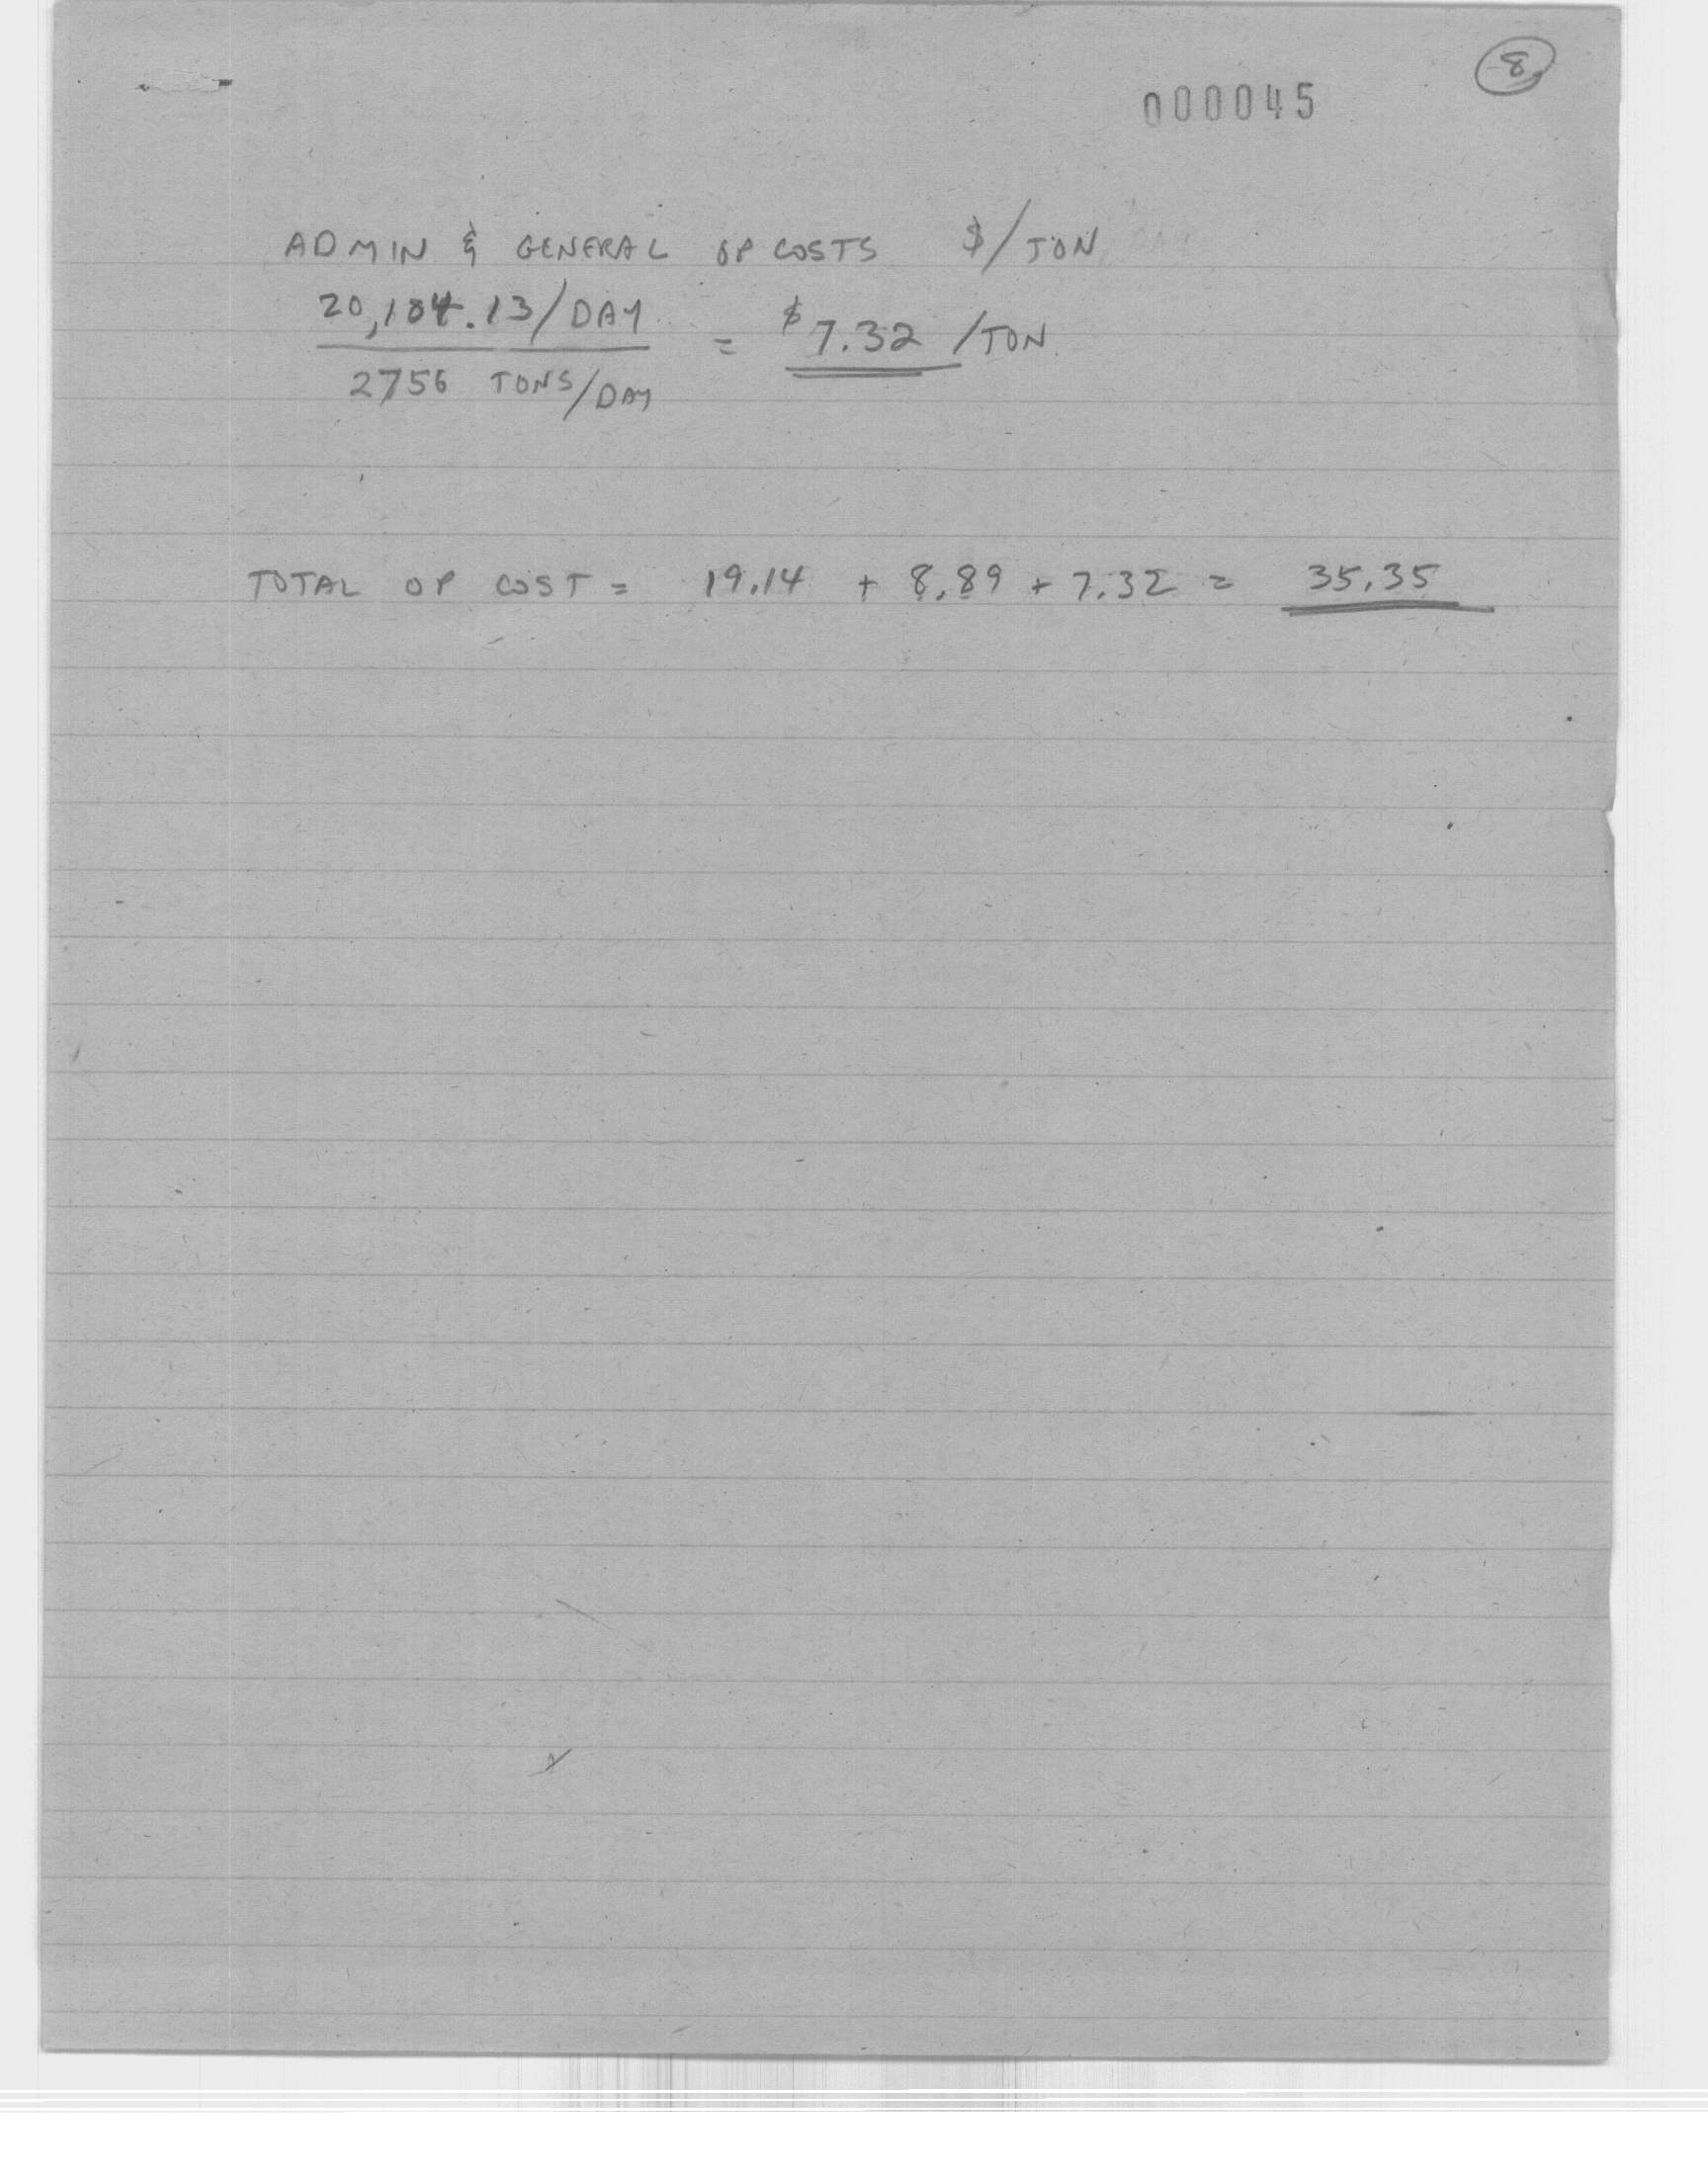 8
000045
ADMIN & GENERAL OP COSTS $/TON
20,184.13/DAY
= $7.32 /TON
2756 TONS/DAY
TOTAL OP COST = 19.14 + 8.89 + 7.32 = 35.35